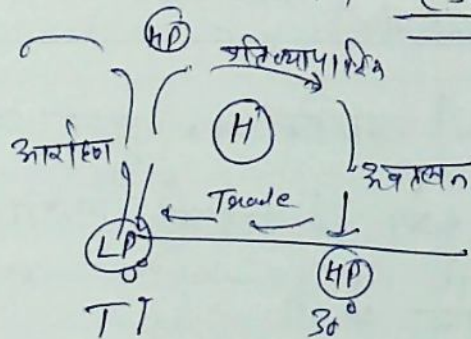 HP
प्रतिव्यापारिक
H
आरोहण
अवतलन
Trade
LP
HP
TT
30